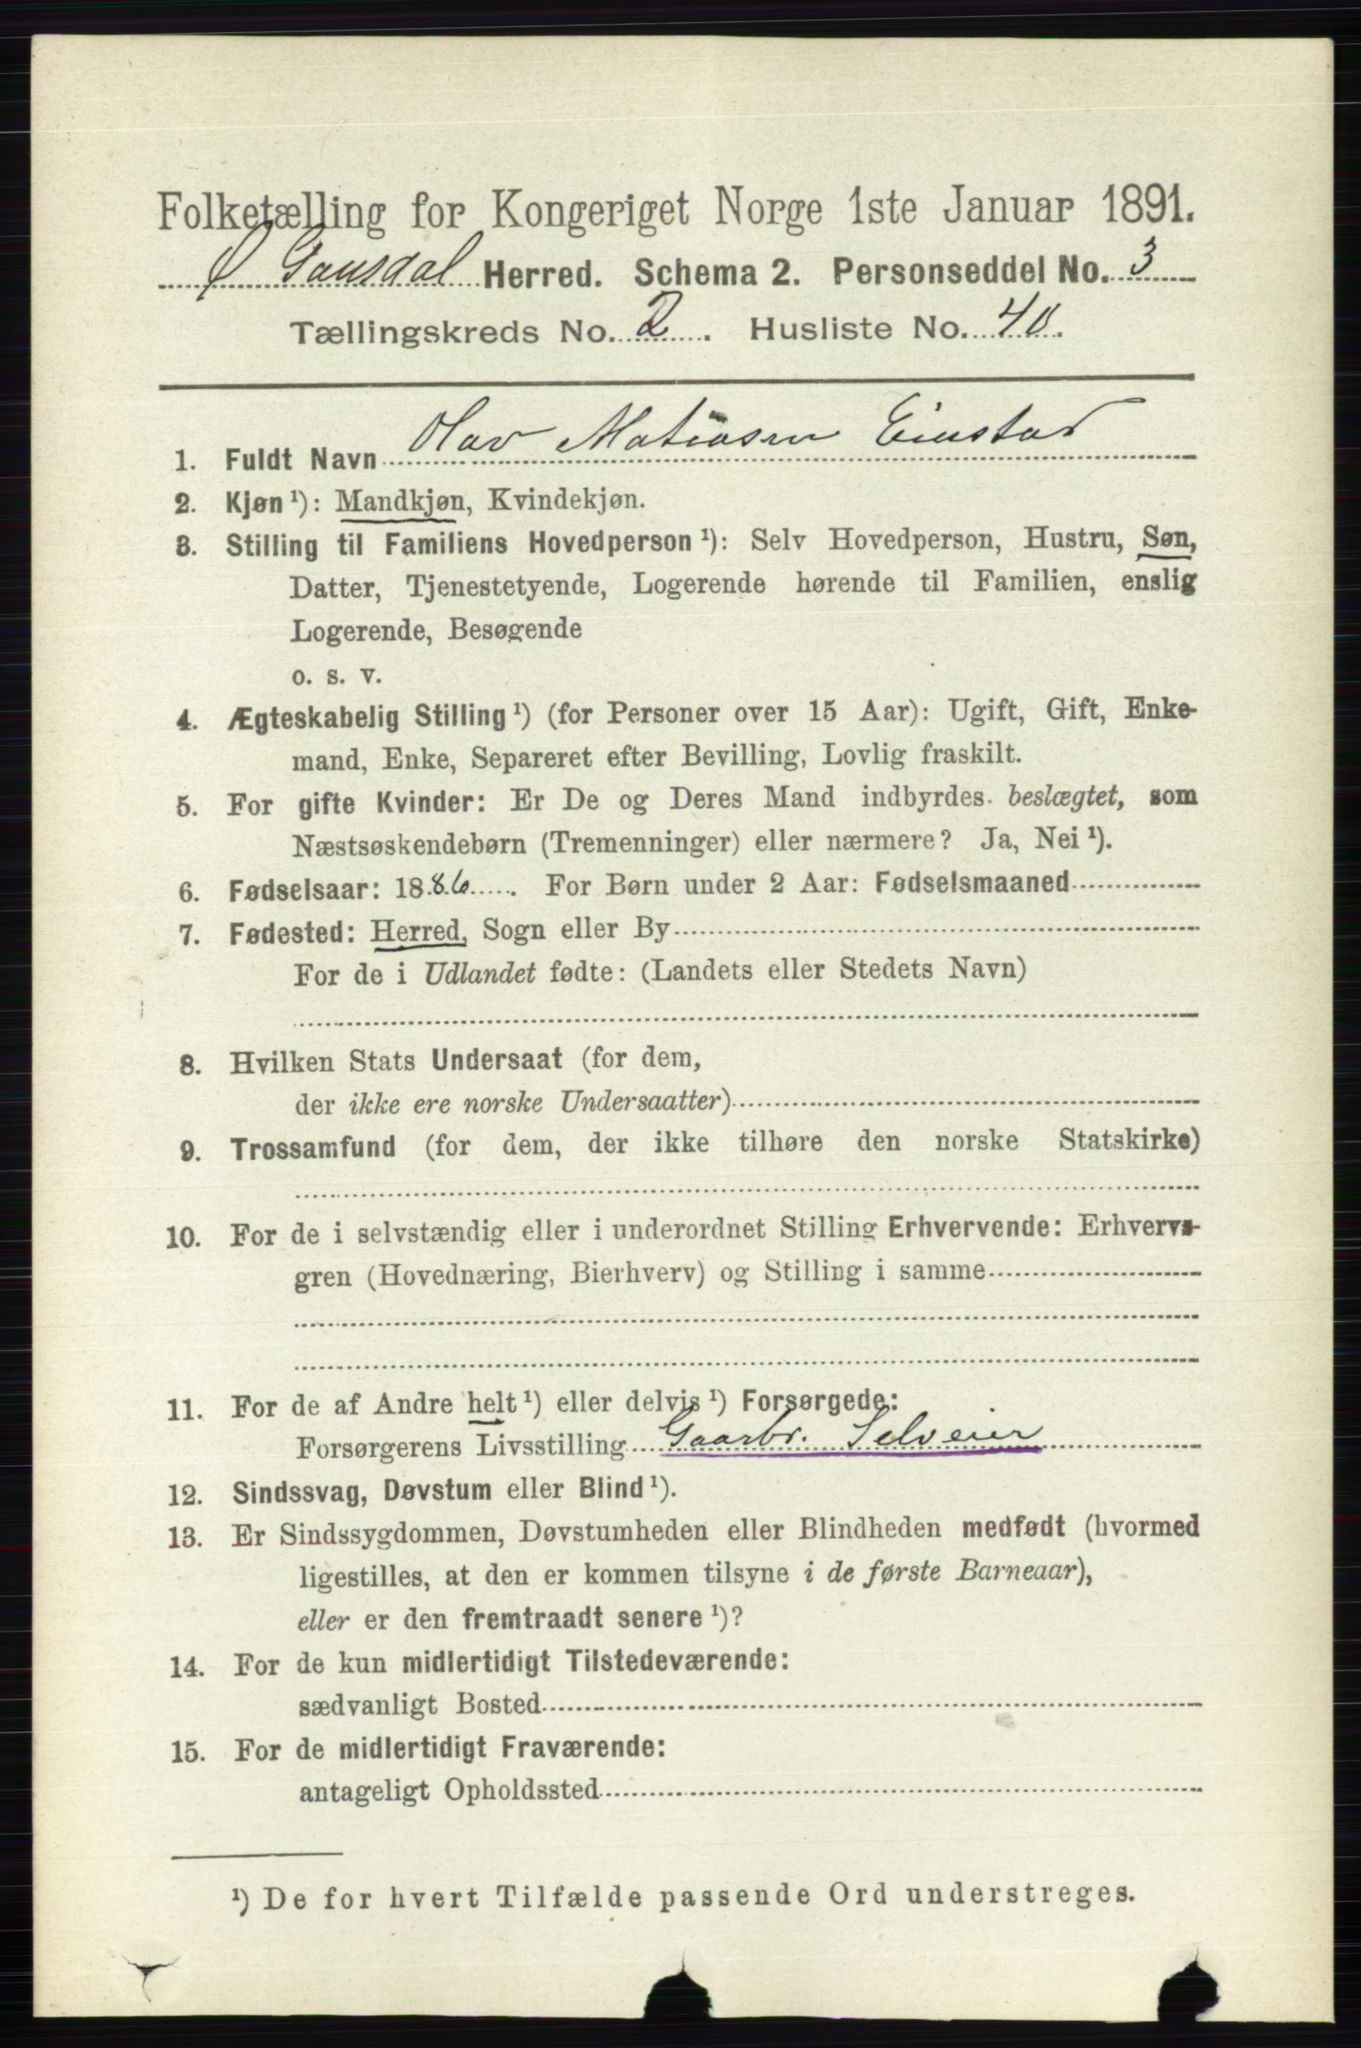 Folketælling for Kongeriget Norge 1ste Januar 1891.
Ø Gausdal Herred. Schema 2. Personseddel No. 3
Tællingskreds No. 2. Husliste No. 40.
1. Fuldt Navn Olav Matiasen Einstad
2. Kjøn ¹): Mandkjøn, Kvindekjøn.
3. Stilling til Familiens Hovedperson ¹): Selv Hovedperson, Hustru, Søn,
Datter, Tjenestetyende, Logerende hørende til Familien, enslig
Logerende, Besøgende
o. s. v.
4. Ægteskabelig Stilling ¹) (for Personer over 15 Aar): Ugift, Gift, Enke-
mand, Enke, Separeret efter Bevilling, Lovlig fraskilt.
5. For gifte Kvinder: Er De og Deres Mand indbyrdes beslægtet, som
Næstsøskendebørn (Tremenninger) eller nærmere? Ja, Nei ¹).
6. Fødselsaar: 1886. For Børn under 2 Aar: Fødselsmaaned
7. Fødested: Herred, Sogn eller By
For de i Udlandet fødte: (Landets eller Stedets Navn)
8. Hvilken Stats Undersaat (for dem,
der ikke ere norske Undersaatter)
9. Trossamfund (for dem, der ikke tilhøre den norske Statskirke)
10. For de i selvstændig eller i underordnet Stilling Erhvervende: Erhvervs-
gren (Hovednæring, Bierhverv) og Stilling i samme
11. For de af Andre helt ¹) eller delvis ¹) Forsørgede:
Forsørgerens Livsstilling Gaarbr. Selveier
12. Sindssvag, Døvstum eller Blind ¹).
13. Er Sindssygdommen, Døvstumheden eller Blindheden medfødt (hvormed
ligestilles, at den er kommen tilsyne i de første Barneaar),
eller er den fremtraadt senere ¹)?
14. For de kun midlertidigt Tilstedeværende:
sædvanligt Bosted
15. For de midlertidigt Fraværende:
antageligt Opholdssted
¹) De for hvert Tilfælde passende Ord understreges.